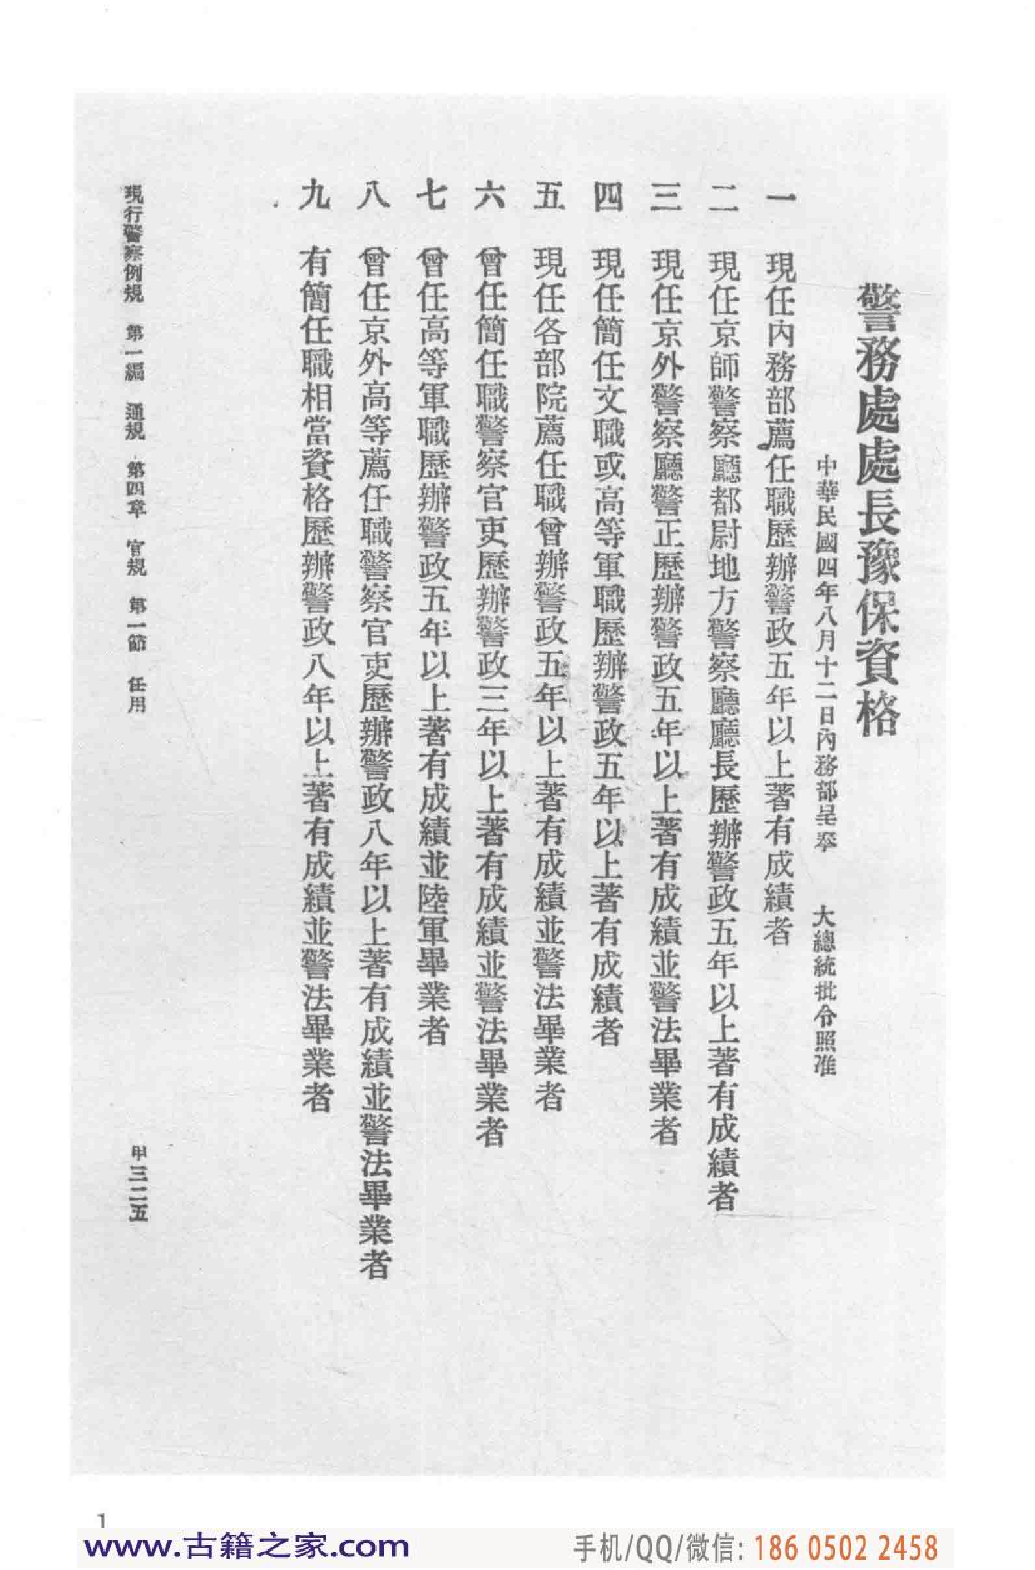 警務處處長豫保資格
中華民國四年八月十二日內務部呈奉　大總統批令照准
一　現任內務部薦任職歷辦警政五年以上著有成績者
二　現任京師警察廳都尉地方警察廳廳長歷辦警政五年以上著有成績者
三　現任京外警察廳警正歷辦警政五年以上著有成績並警法畢業者
四　現任簡任文職或高等軍職歷辦警政五年以上著有成績者
五　現任各部院薦任職曾辦警政五年以上著有成績並警法畢業者
六　曾任簡任職警察官吏歷辦警政三年以上著有成績並警法畢業者
七　曾任高等軍職歷辦警政五年以上著有成績並陸軍畢業者
八　曾任京外高等薦任職警察官吏歷辦警政八年以上著有成績並警法畢業者
九　有簡任職相當資格歷辦警政八年以上著有成績並警法畢業者
現行警察例規　第一編　通規　第四章　官規　第一節　任用　甲三二五
1
www.古籍之家.com
手机/QQ/微信: 186 0502 2458